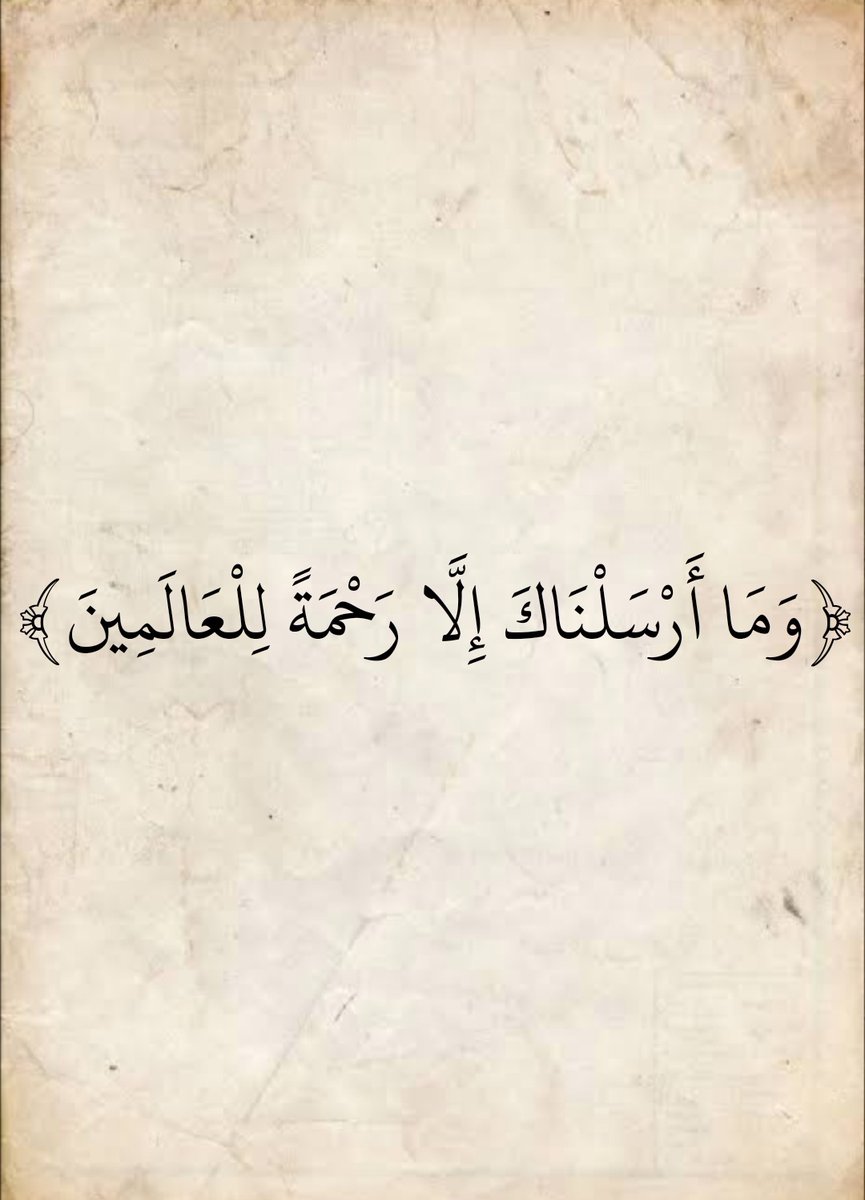 ﴿وَمَا أَرْسَلْنَاكَ إِلَّا رَحْمَةً لِلْعَالَمِينَ﴾